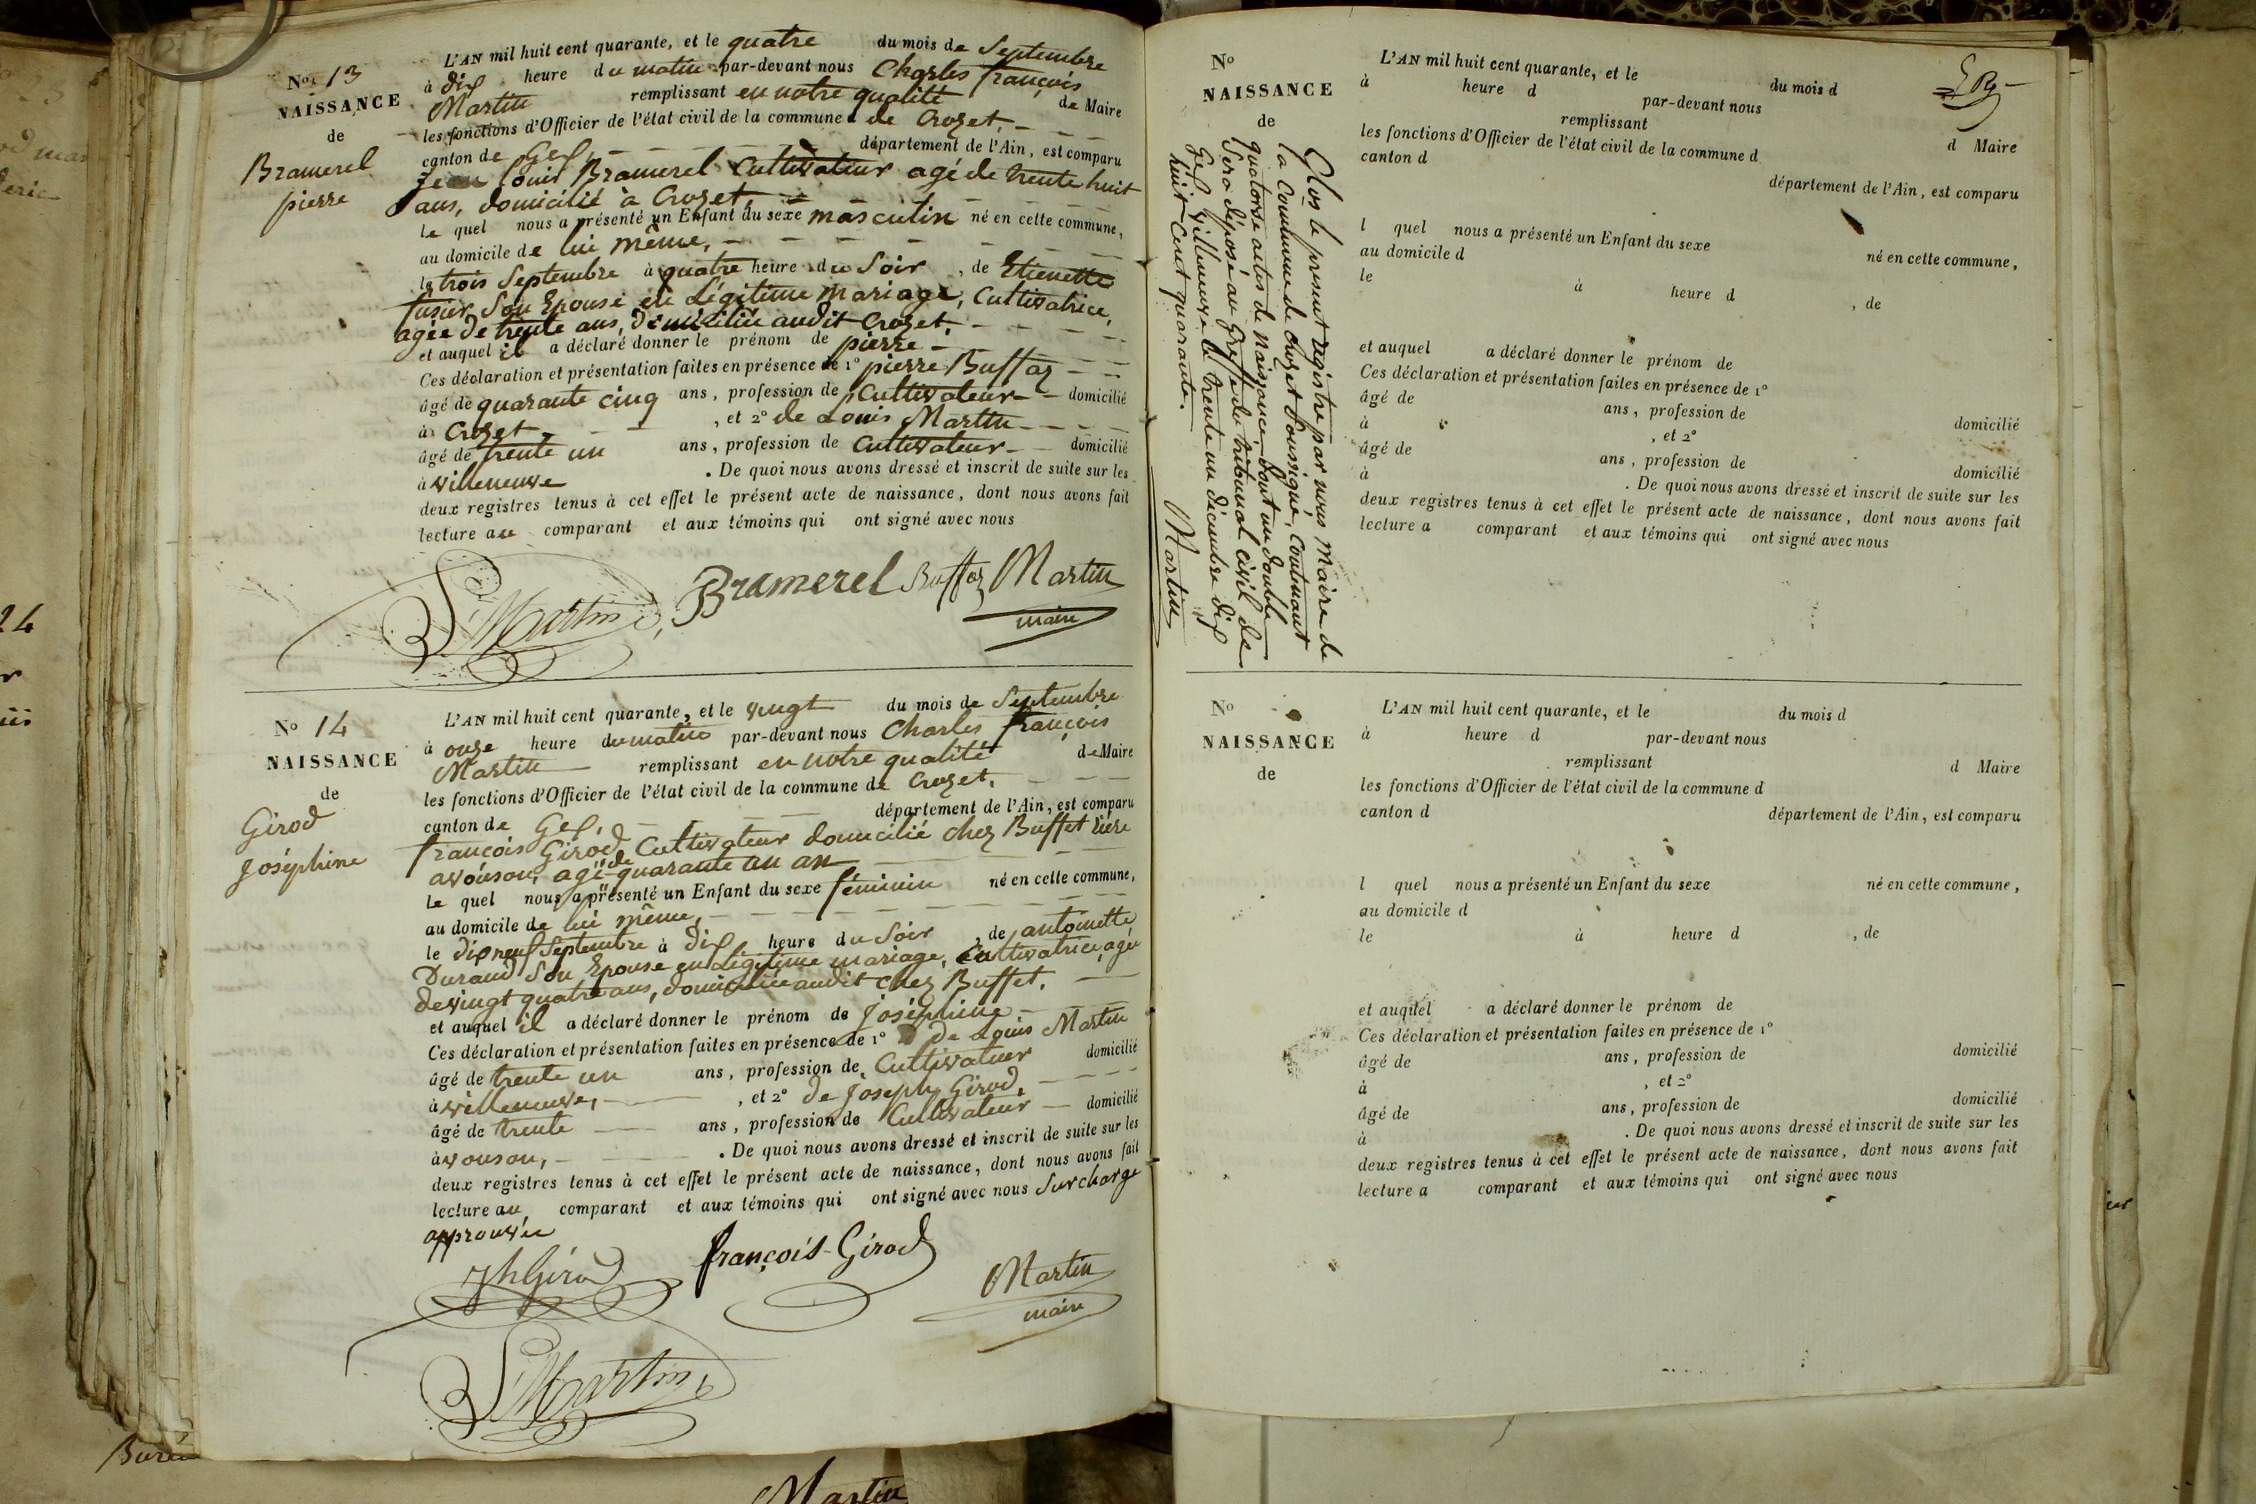 N° 13
NAISSANCE
de
Bramerel
pierre
L'AN mil huit cent quarante, et le quatre du mois de Septembre
à dix heure du matin par-devant nous Charles françois
Martin remplissant en notre qualité de Maire
les fonctions d'Officier de l'état civil de la commune de Crozet,
canton de Gex, département de l'Ain, est comparu
Jean Louis Bramerel Cultivateur agé de trente huit
ans, domicilié à Crozet,
le quel nous a présenté un Enfant du sexe masculin né en cette commune,
au domicile de lui même,
le trois Septembre à quatre heure du Soir, de Etiennette
fusier Son Epouse en Légitime mariage, Cultivatrice,
agée de trente ans, domiciliée audit Crozet.
et auquel il a déclaré donner le prénom de pierre
Ces déclaration et présentation faites en présence de 1° pierre Buffaz
âgé de quarante cinq ans, profession de Cultivateur domicilié
à Crozet, et 2° de Louis Martin
âgé de trente un ans, profession de Cultivateur domicilié
à villeneuve. De quoi nous avons dressé et inscrit de suite sur les
deux registres tenus à cet effet le présent acte de naissance, dont nous avons fait
lecture au comparant et aux témoins qui ont signé avec nous
L Martin Bramerel Buffaz Martin
maire
N° 14
NAISSANCE
de
Girod
Joséphine
L'AN mil huit cent quarante, et le vingt du mois de Septembre
à onze heure du matin par-devant nous Charles françois
Martin remplissant en notre qualité de Maire
les fonctions d'Officier de l'état civil de la commune de Crozet,
canton de Gex, département de l'Ain, est comparu
françois Girod Cultivateur domicilié chez Buffet rière
avouson, agé de quarante un an
le quel nous a présenté un Enfant du sexe féminin né en cette commune,
au domicile de lui même,
le dix neuf Septembre à dix heure du Soir, de antoinette
Durand Son Epouse en Légitime mariage, Cultivatrice, agée
de vingt quatre ans, domiciliée audit chez Buffet.
et auquel il a déclaré donner le prénom de Joséphine
Ces déclaration et présentation faites en présence de 1° de Louis Martin
âgé de trente un ans, profession de Cultivateur domicilié
à villeneuve, et 2° de Joseph Girod,
âgé de trente ans, profession de Cultivateur domicilié
à vouson, . De quoi nous avons dressé et inscrit de suite sur les
deux registres tenus à cet effet le présent acte de naissance, dont nous avons fait
lecture au comparant et aux témoins qui ont signé avec nous Surcharge
approuvée
Jh Girod françois Girod Martin
maire
L Martin
Martin
N°
NAISSANCE
de
Clos le présent registre par nous Maire de
la Commune de Crozet Soussigné, Contenant
quatorze actes de naissance, dont un double
Sera déposé au Greffe du tribunal civil de
Gex, villeneuve le trente un décembre dix
huit Cent quarante.
Martin
L'AN mil huit cent quarante, et le du mois d
à heure d par-devant nous
remplissant d Maire
les fonctions d'Officier de l'état civil de la commune d
canton d département de l'Ain, est comparu
l quel nous a présenté un Enfant du sexe né en cette commune,
au domicile d
le à heure d , de
et auquel a déclaré donner le prénom de
Ces déclaration et présentation faites en présence de 1°
âgé de ans, profession de domicilié
à , et 2°
âgé de ans, profession de domicilié
à . De quoi nous avons dressé et inscrit de suite sur les
deux registres tenus à cet effet le présent acte de naissance, dont nous avons fait
lecture a comparant et aux témoins qui ont signé avec nous
N°
NAISSANCE
de
L'AN mil huit cent quarante, et le du mois d
à heure d par-devant nous
remplissant d Maire
les fonctions d'Officier de l'état civil de la commune d
canton d département de l'Ain, est comparu
l quel nous a présenté un Enfant du sexe né en cette commune,
au domicile d
le à heure d , de
et auquel a déclaré donner le prénom de
Ces déclaration et présentation faites en présence de 1°
âgé de ans, profession de domicilié
à , et 2°
âgé de ans, profession de domicilié
à . De quoi nous avons dressé et inscrit de suite sur les
deux registres tenus à cet effet le présent acte de naissance, dont nous avons fait
lecture a comparant et aux témoins qui ont signé avec nous